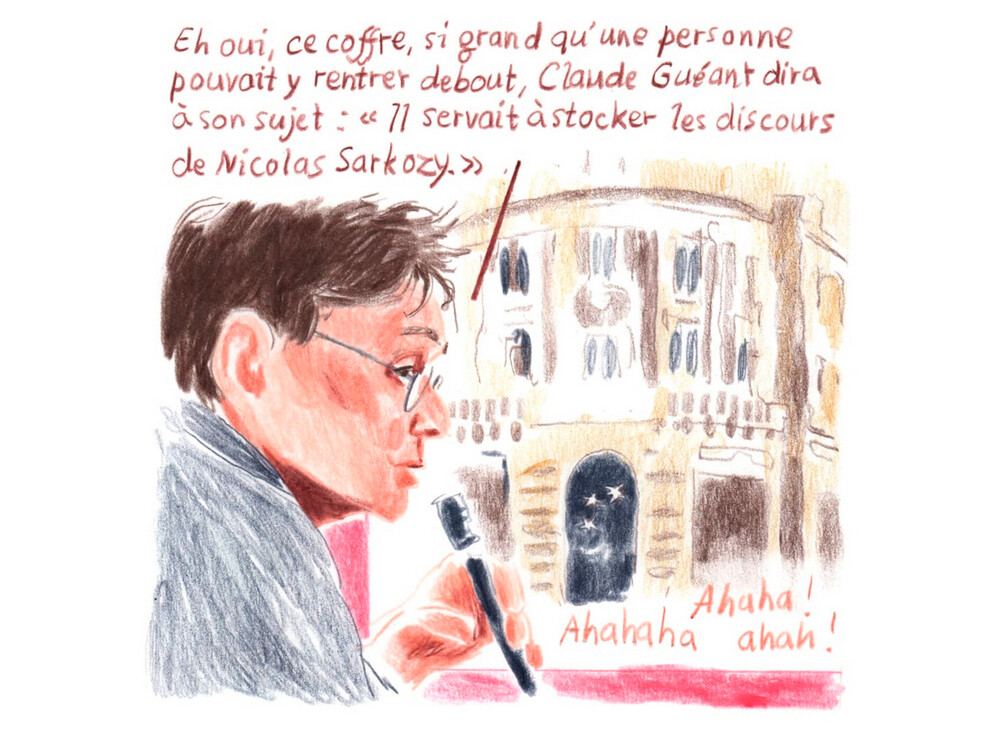 Eh oui, ce coffre, si grand qu'une personne
pouvait y rentrer debout, Claude Guéant dira
à son sujet : « Il servait à stocker les discours
de Nicolas Sarkozy. »
Ahaha !
Ahahaha ahah !